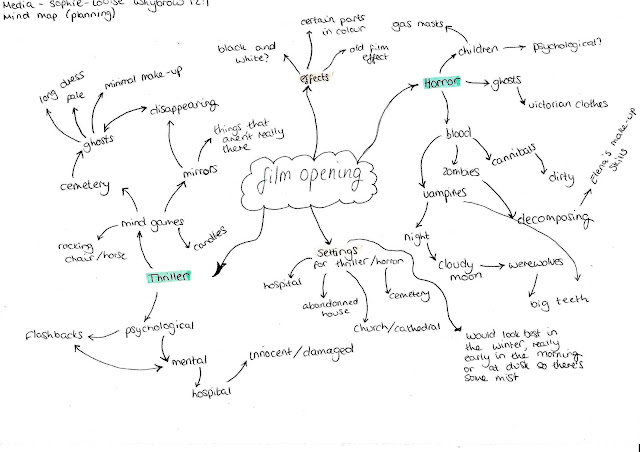 Media - Sophie-Louise Whybrow 12:1
Mind map (planning)
certain parts
in colour
black and
white?
old film
effect
effects
gas masks
children
psychological?
Horror
ghosts
victorian clothes
blood
cannibals
zombies
dirty
vampires
decomposing
Elena's make-up
skills
night
cloudy
moon
werewolves
big teeth
long dress
pale
minimal make-up
disappearing
ghosts
things that
aren't really
there
mirrors
cemetery
film opening
mind games
candles
rocking
chair/horse
Thriller
Settings
for thriller/horror
hospital
abandonned
house
cemetery
church/cathedral
would look best in
the winter, really
early in the morning
or at dusk so there's
some mist
psychological
flashbacks
mental
innocent/damaged
hospital